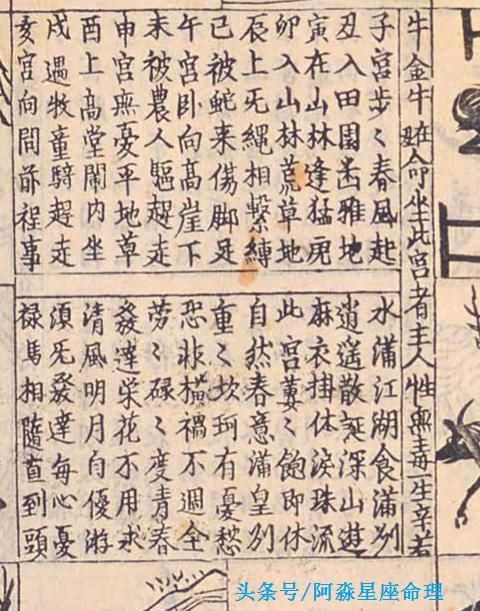 牛金牛命坐此宮者主人性無毒一生辛
子宮步〻春風起
丑入田園幽雅地
寅在山林逢猛虎
卯入山林荒草地
辰上旡繩相繫縛
巳被蛇来傷脚足
午宮卧向高崖下
未被農人驅趕走
申宮無憂平地草
酉上高堂闌内坐
戍遇牧童騎趕走
亥宮向問前程事
水滿江湖食滿
逍遥散誕深山遊
麻衣掛体淚珠流
此宮萋〻飽即休
自然春意滿皇
重〻坎坷有憂愁
恐非橫禍不週全
劳〻碌〻度青春
發達荣花不用求
清風明月自優游
須旡發達每心憂
禄馬相隨直到頭
头条号/阿淼星座命理